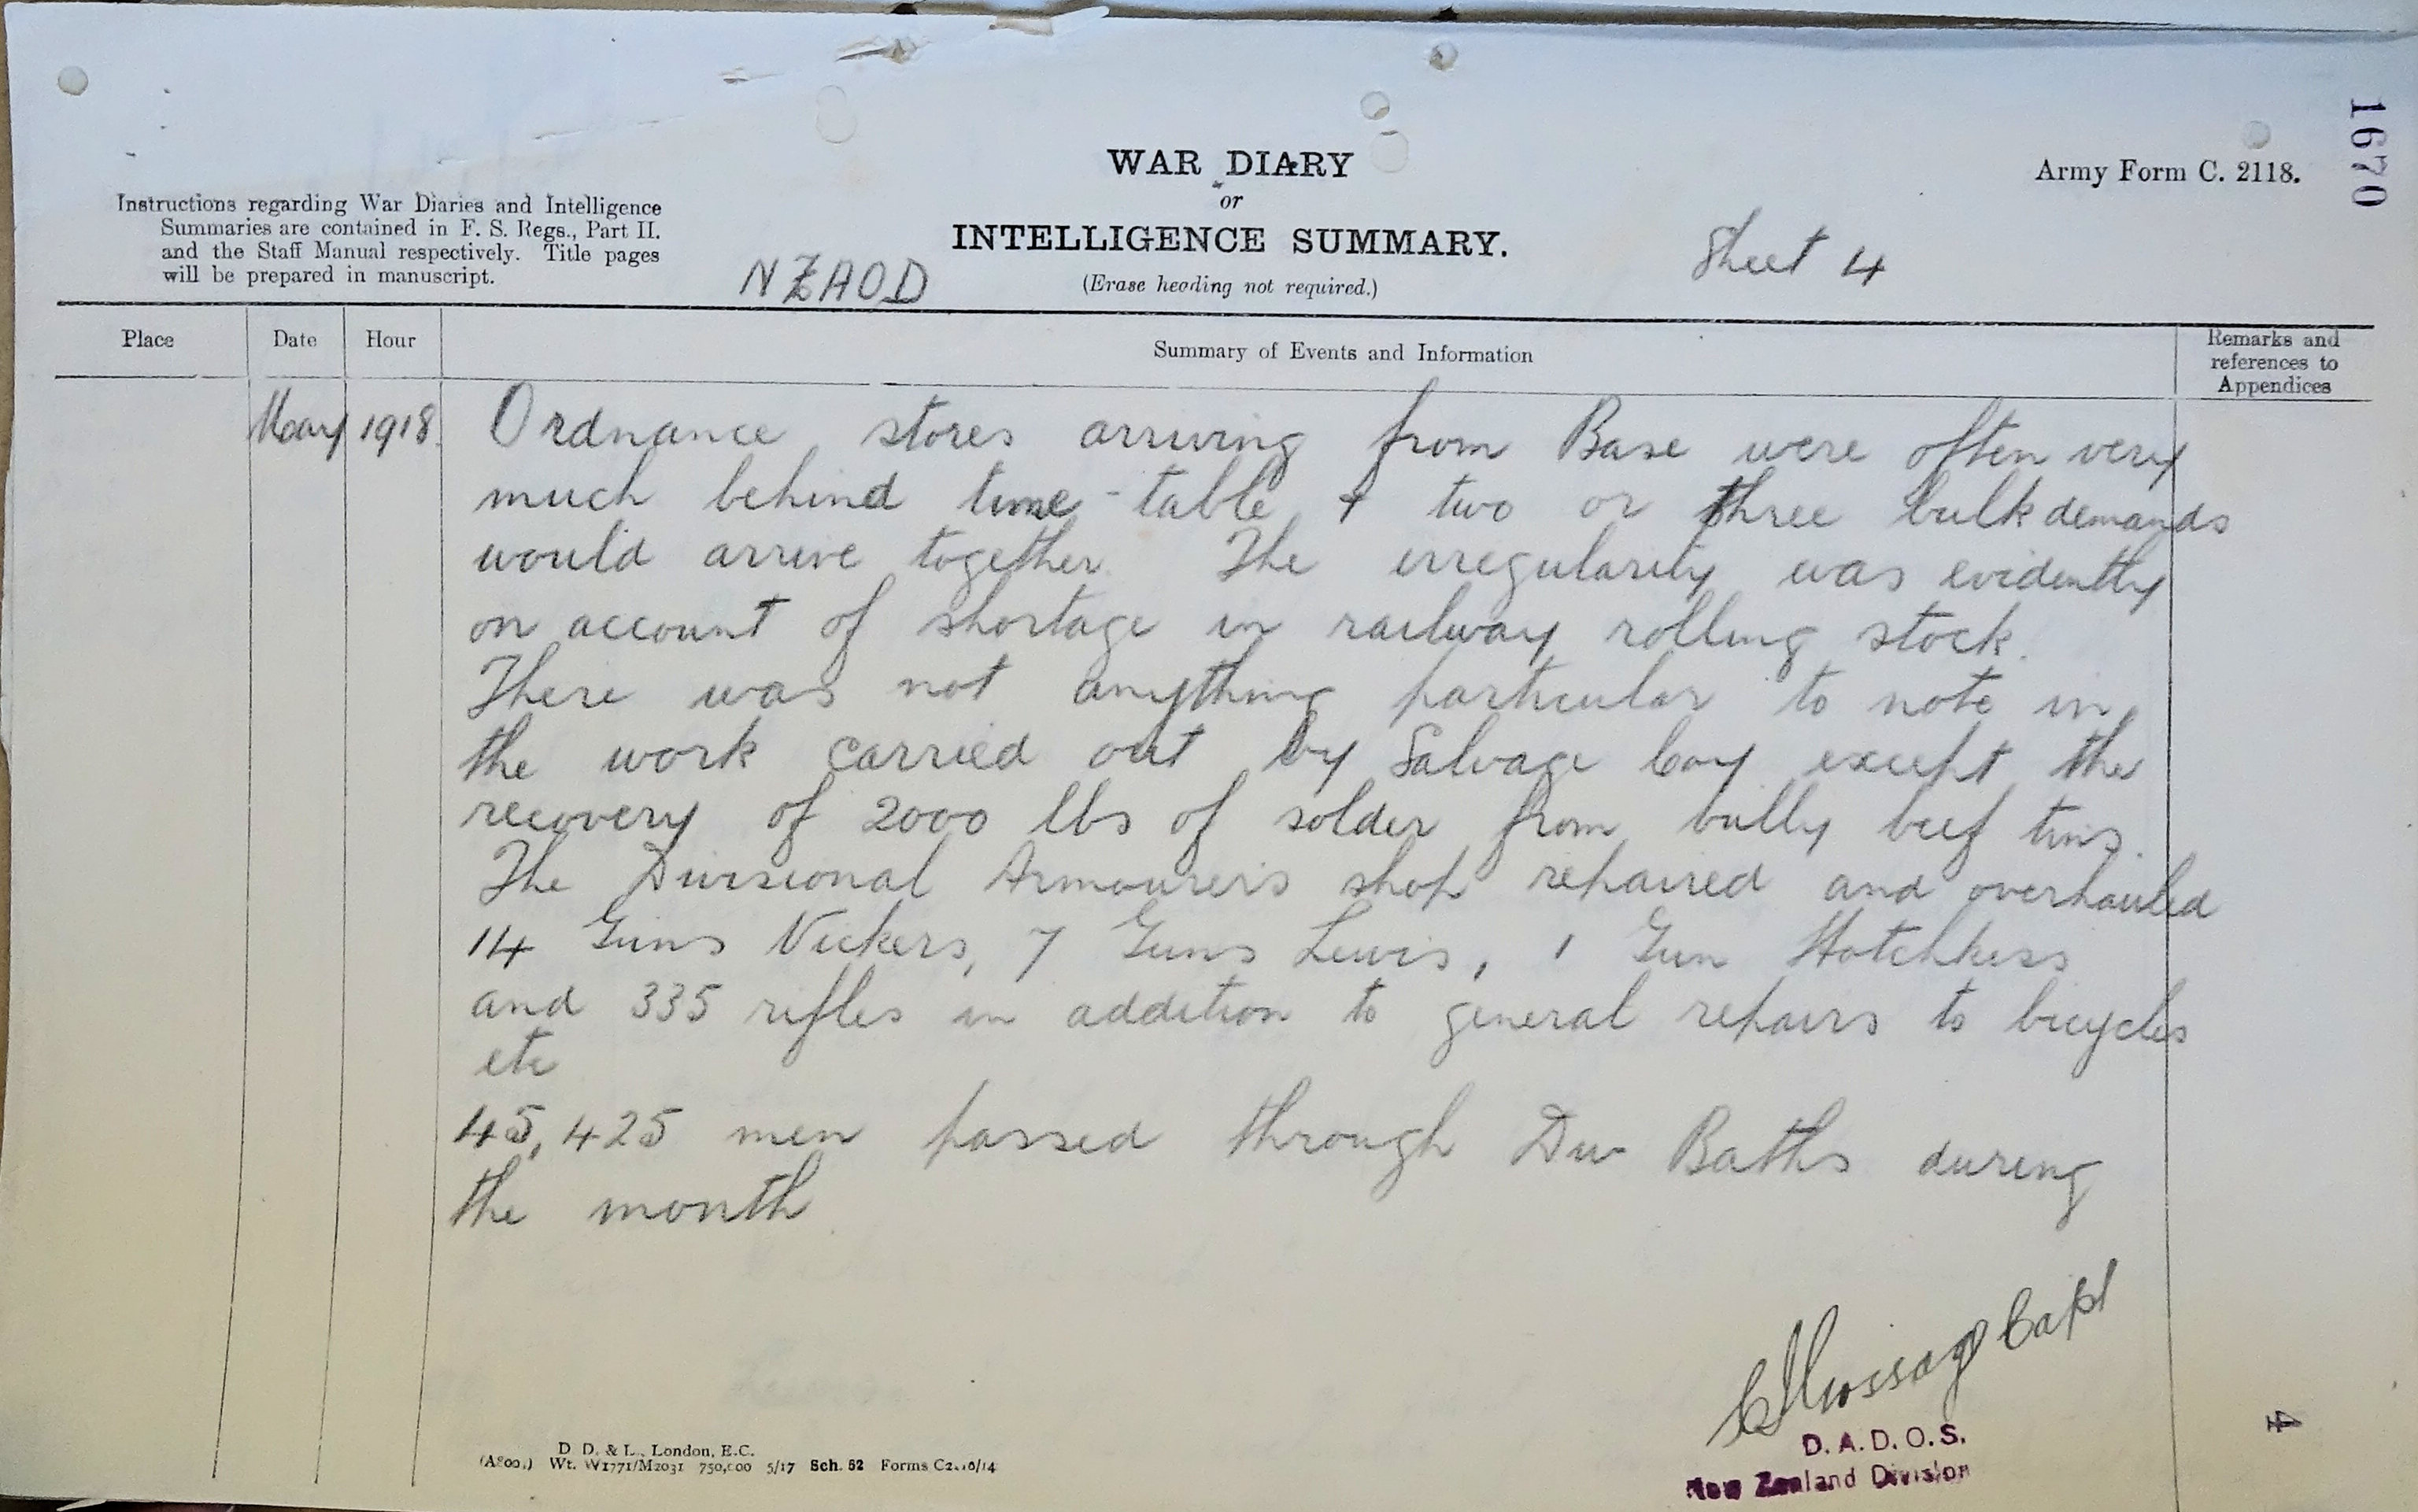 1670
Army Form C. 2118.
WAR DIARY
or
INTELLIGENCE SUMMARY.
(Erase heading not required.)
Instructions regarding War Diaries and Intelligence
Summaries are contained in F. S. Regs., Part II.
and the Staff Manual respectively. Title pages
will be prepared in manuscript.
NZAOD
Sheet 4
Place
Date
Hour
Summary of Events and Information
Remarks and
references to
Appendices
May 1918.
Ordnance stores arriving from Base were often very
much behind time-table & two or three bulk demands
would arrive together. The irregularity was evidently
on account of shortage in railway rolling stock.
There was not anything particular to note in
the work carried out by Salvage Coy except the
recovery of 2000 lbs of solder from bully beef tins.
The Divisional Armourers shop repaired and overhauled
14 Guns Vickers, 7 Guns Lewis, 1 Gun Hotchkiss
and 335 rifles in addition to general repairs to bicycles
etc
45,425 men passed through Div Baths during
the month
Capt
D.A.D.O.S.
New Zealand Division
4
D. D. & L., London, E.C.
Wt. W1771/M2031 750,000 5/17 Sch. 52 Forms